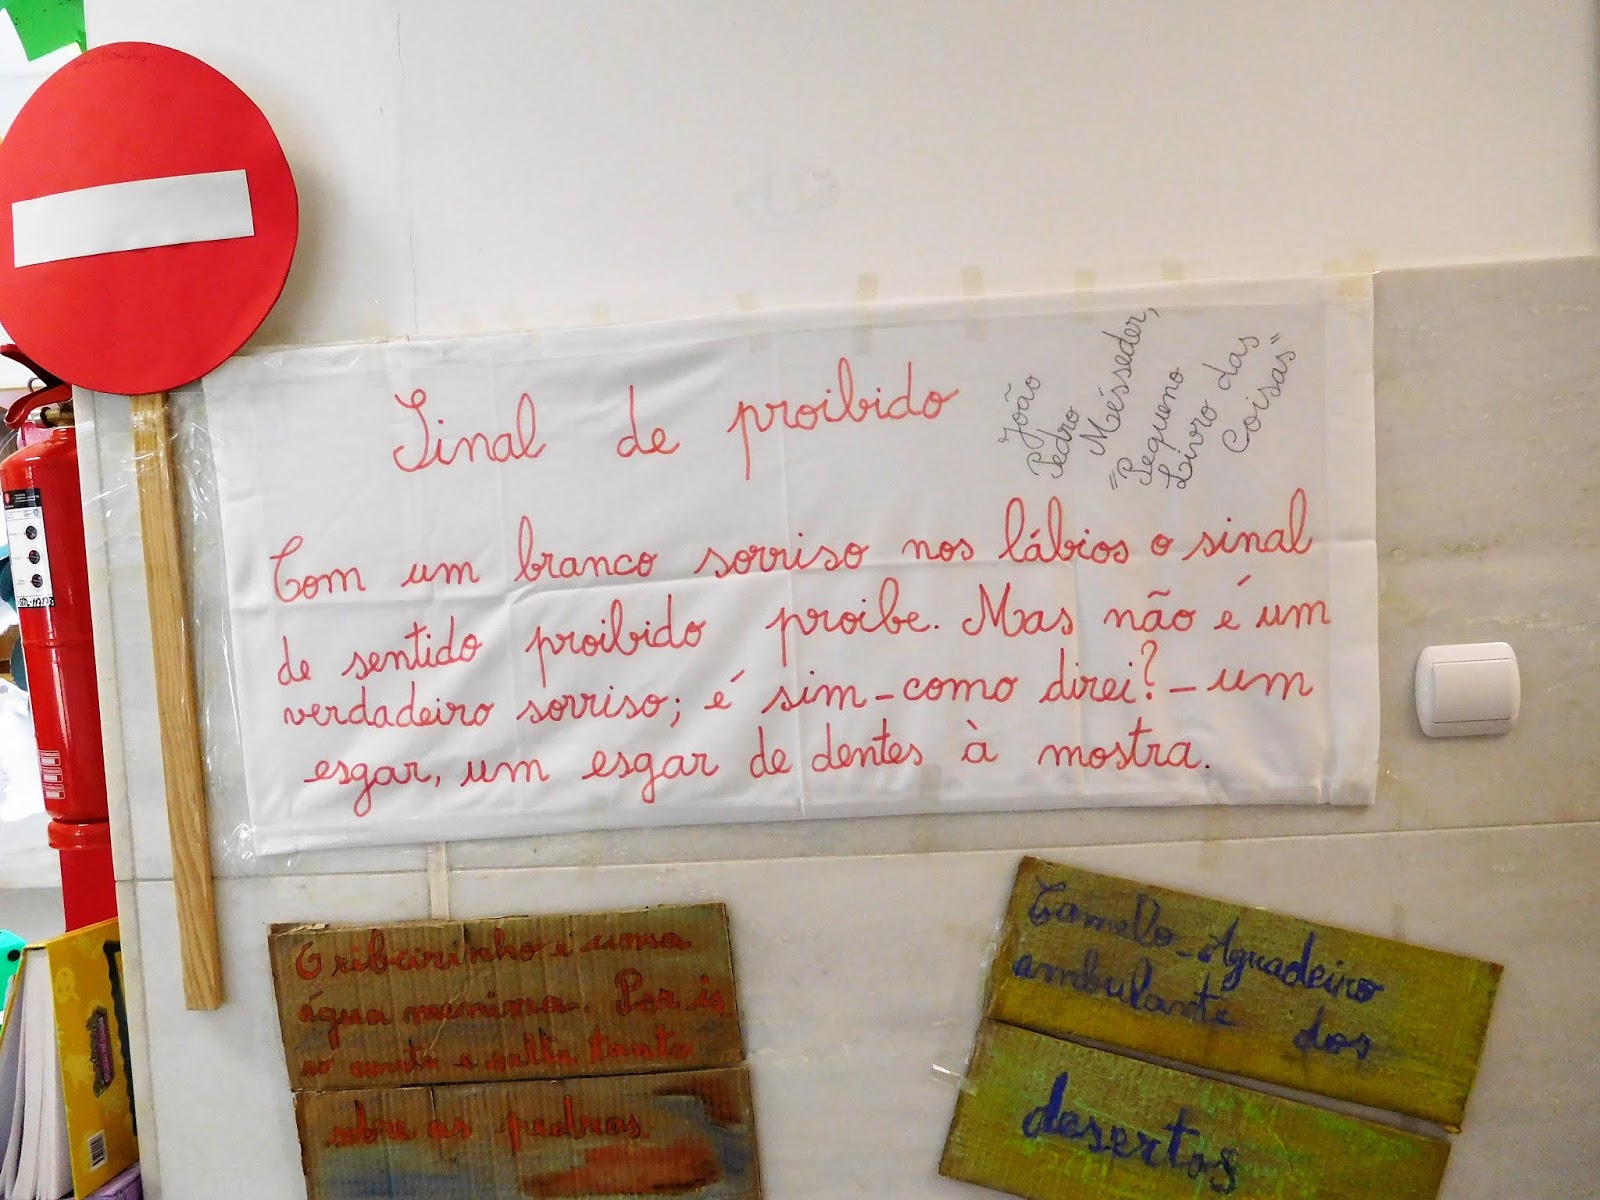 Sinal de proibido
João
Pedro
Mésseder,
"Pequeno
Livro das
Coisas"
Com um branco sorriso nos lábios o sinal
de sentido proibido proibe. Mas não é um
verdadeiro sorriso; é sim - como direi? - um
esgar, um esgar de dentes à mostra.
O ribeirinho é uma
água menina. Por is
so canta e salta tanto
sobre as pedras.
Camelo - Aguadeiro
ambulante dos
desertos